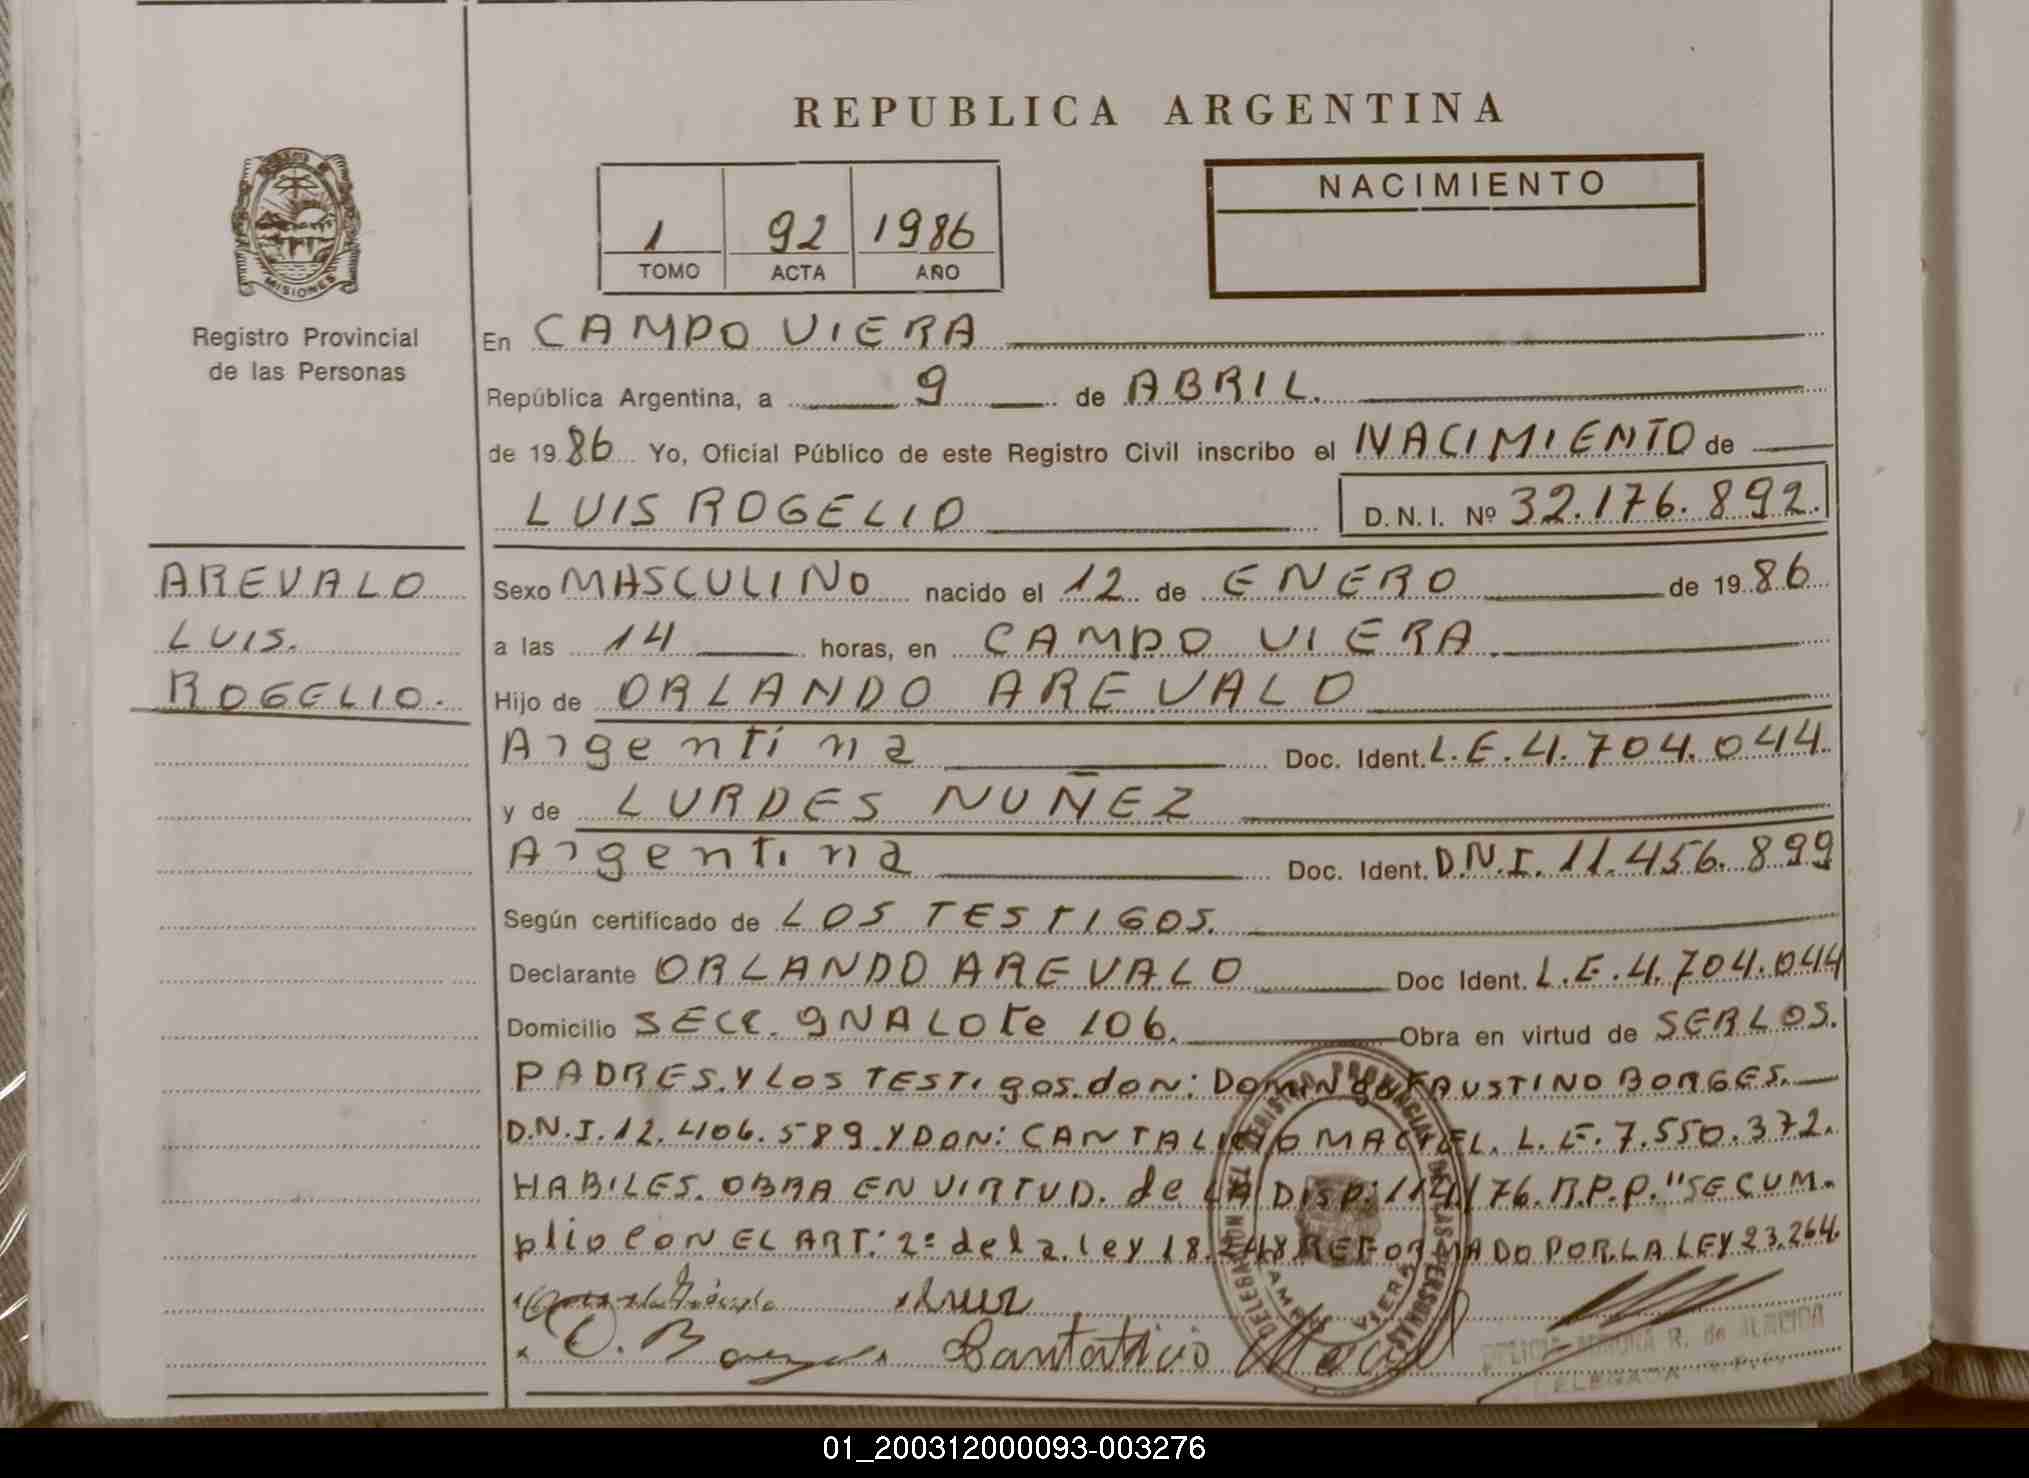 REPUBLICA ARGENTINA
MISIONES
Registro Provincial
de las Personas
1 92 1986
TOMO ACTA AÑO
NACIMIENTO
En CAMPO VIERA
República Argentina, a 9 de ABRIL.
de 1986 Yo, Oficial Público de este Registro Civil inscribo el NACIMIENTO de
LUIS ROGELIO D.N.I. Nº 32.176.892.
AREVALO
LUIS.
ROGELIO.
Sexo MASCULINO nacido el 12 de ENERO de 1986
a las 14 horas, en CAMPO VIERA.
Hijo de ORLANDO AREVALO
Argentina Doc. Ident. L.E.4.704.044.
y de LURDES NUÑEZ
Argentina Doc. Ident. D.N.I. 11.456.899
Según certificado de LOS TESTIGOS.
Declarante ORLANDO AREVALO Doc Ident. L.E.4.704.044
Domicilio SECC. 9NA LOte 106. Obra en virtud de SER LOS.
PADRES. Y LOS TESTIgos. doN: DOMINgo FAUSTINO BORGES.
D.N.I. 12.406.589. Y DON: CANTALICIO MACIEL. L.E. 7.550.372.
HABILES. OBRA EN VIRTUD. de LA DISP: 114/76. R.P.P. "SE CUM-
plio CON EL ART: 2º de la ley 18.248 REFORMADO POR LA LEY 23.264.
D. B
Cantalicio Maciel
REGISTRO PROVINCIAL DE LAS PERSONAS
CAMPO VIERA
R. de ALMEIDA
DELEGADA
01_200312000093-003276